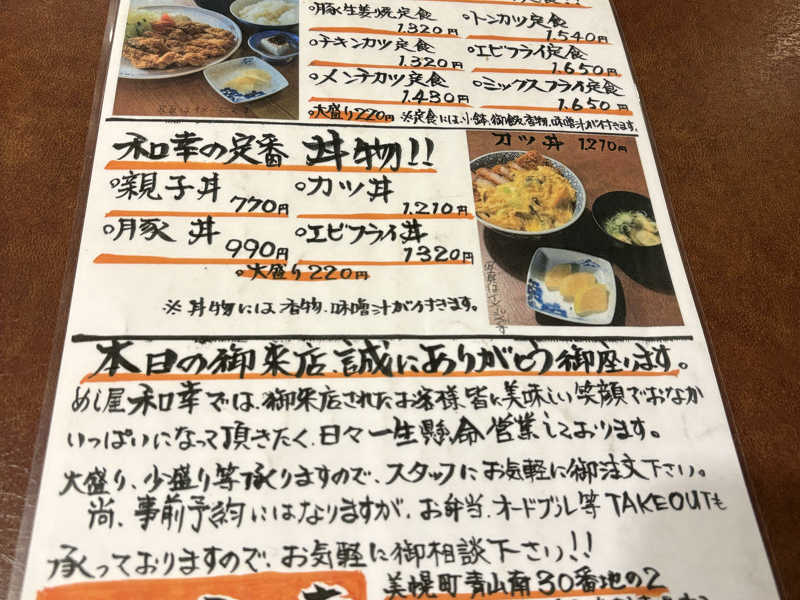 ○豚生姜焼定食
1.320円
○トンカツ定食
1.540円
○チキンカツ定食
1.320円
○エビフライ定食
1.650円
○メンチカツ定食
1.430円
○ミックスフライ定食
1.650円
○大盛り220円 ※定食には、小鉢、御飯、香物、味噌汁が付きます。
和幸の定番 丼物!!
○親子丼 770円
○カツ丼 1.210円
○豚丼 990円
○エビフライ丼 1320円
○大盛り220円
※丼物には香物、味噌汁が付きます。
カツ丼 1.210円
本日の御来店、誠にありがとう御座います。
めし屋和幸では、御来店されたお客様皆に美味しい笑顔でおなか
いっぱいになって頂きたく、日々一生懸命営業しております。
大盛り、少盛り等承りますので、スタッフにお気軽に御注文下さい。
尚、事前予約にはなりますが、お弁当、オードブル等TAKEOUTも
承っておりますので、お気軽に御相談下さい!!
美幌町青山南30番地の2